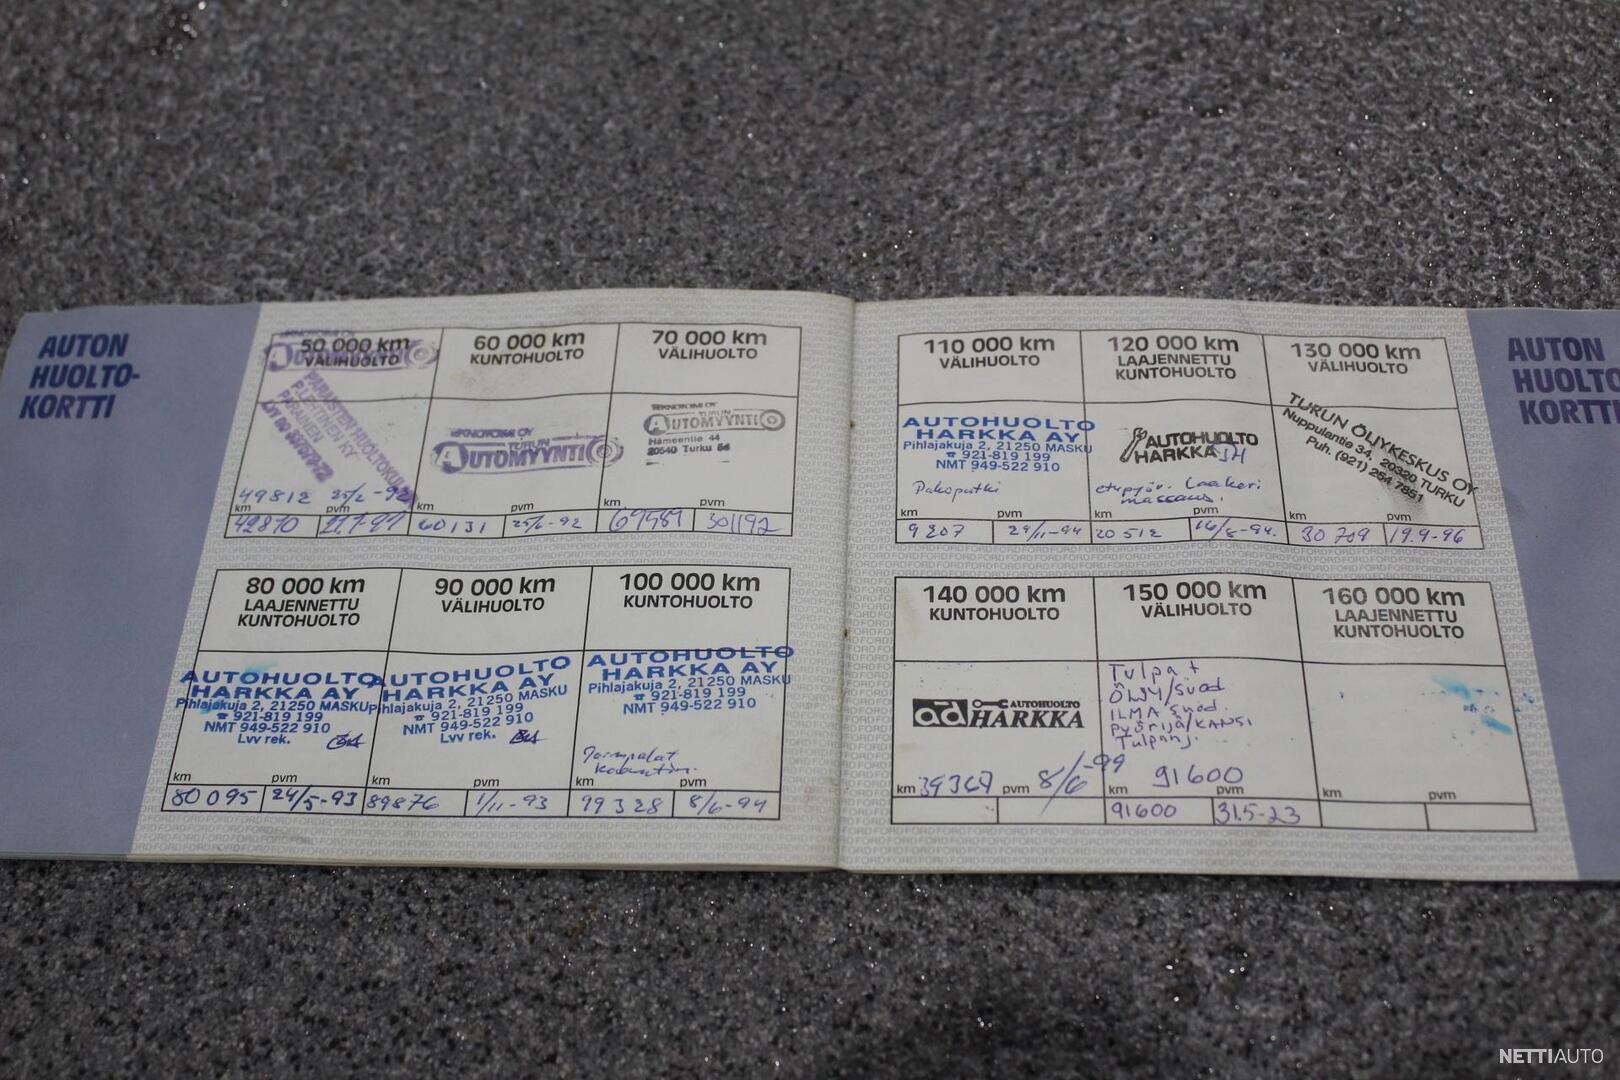 AUTON
HUOLTO-
KORTTI
50 000 km
VÄLIHUOLTO
TEKNOTOIMI OY
AUTOMYYNTI
PARAISTEN HUOLTOKULMA
P. LEHTINEN KY
PARAINEN
49812 25/2 -92
km pvm
42810 21.7-91
60 000 km
KUNTOHUOLTO
TEKNOTOIMI OY
TURUN
AUTOMYYNTI
km pvm
60131 25/6-92
70 000 km
VÄLIHUOLTO
TEKNOTOIMI OY
TURUN
AUTOMYYNTI
Hämeentie 44
20540 Turku 54
km pvm
69581 301192
80 000 km
LAAJENNETTU
KUNTOHUOLTO
AUTOHUOLTO
HARKKA AY
Pihlajakuja 2, 21250 MASKU
☎ 921-819 199
NMT 949-522 910
Lvv rek.
km pvm
80095 24/5-93
90 000 km
VÄLIHUOLTO
AUTOHUOLTO
HARKKA AY
Pihlajakuja 2, 21250 MASKU
☎ 921-819 199
NMT 949-522 910
Lvv rek.
km pvm
89876 1/11-93
100 000 km
KUNTOHUOLTO
AUTOHUOLTO
HARKKA AY
Pihlajakuja 2, 21250 MASKU
☎ 921-819 199
NMT 949-522 910
km pvm
99328 8/6-94
110 000 km
VÄLIHUOLTO
AUTOHUOLTO
HARKKA AY
Pihlajakuja 2, 21250 MASKU
☎ 921-819 199
NMT 949-522 910
Pakoputki
km pvm
9207 29/11-94
120 000 km
LAAJENNETTU
KUNTOHUOLTO
AUTOHUOLTO
HARKKA
etupyör. Laakeri
km pvm
20512 16/8-94.
130 000 km
VÄLIHUOLTO
TURUN ÖLJYKESKUS OY
Nuppulantie 34, 20320 TURKU
Puh. (921) 254 7851
km pvm
30709 19.9-96
140 000 km
KUNTOHUOLTO
ad AUTOHUOLTO
HARKKA
km 39367 pvm 8/6-99
150 000 km
VÄLIHUOLTO
Tulpat
ÖLJY/suod
ILMA suod.
Pyörijä/KANSI
Tulpanj.
91600
km pvm
91600 31.5-23
160 000 km
LAAJENNETTU
KUNTOHUOLTO
km pvm
AUTON
HUOLTO
KORTTI
NETTIAUTO